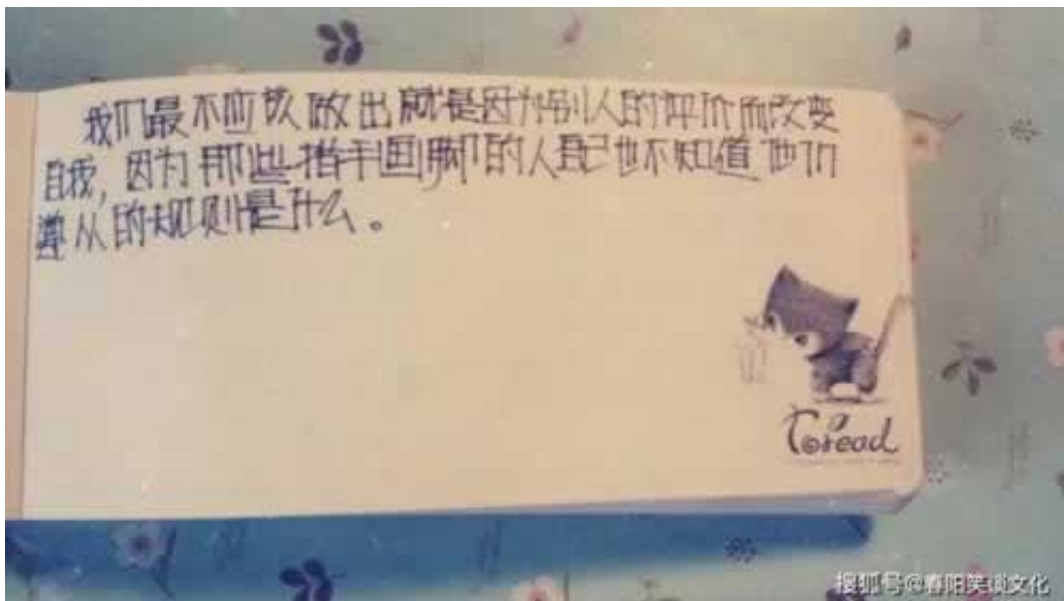 我们最不应该做出就是因为别人的评价而改变
自我，因为那些指手画脚的人自己也不知道他们
遵从的规则是什么。
Coread
搜狐号@春阳笑琐文化